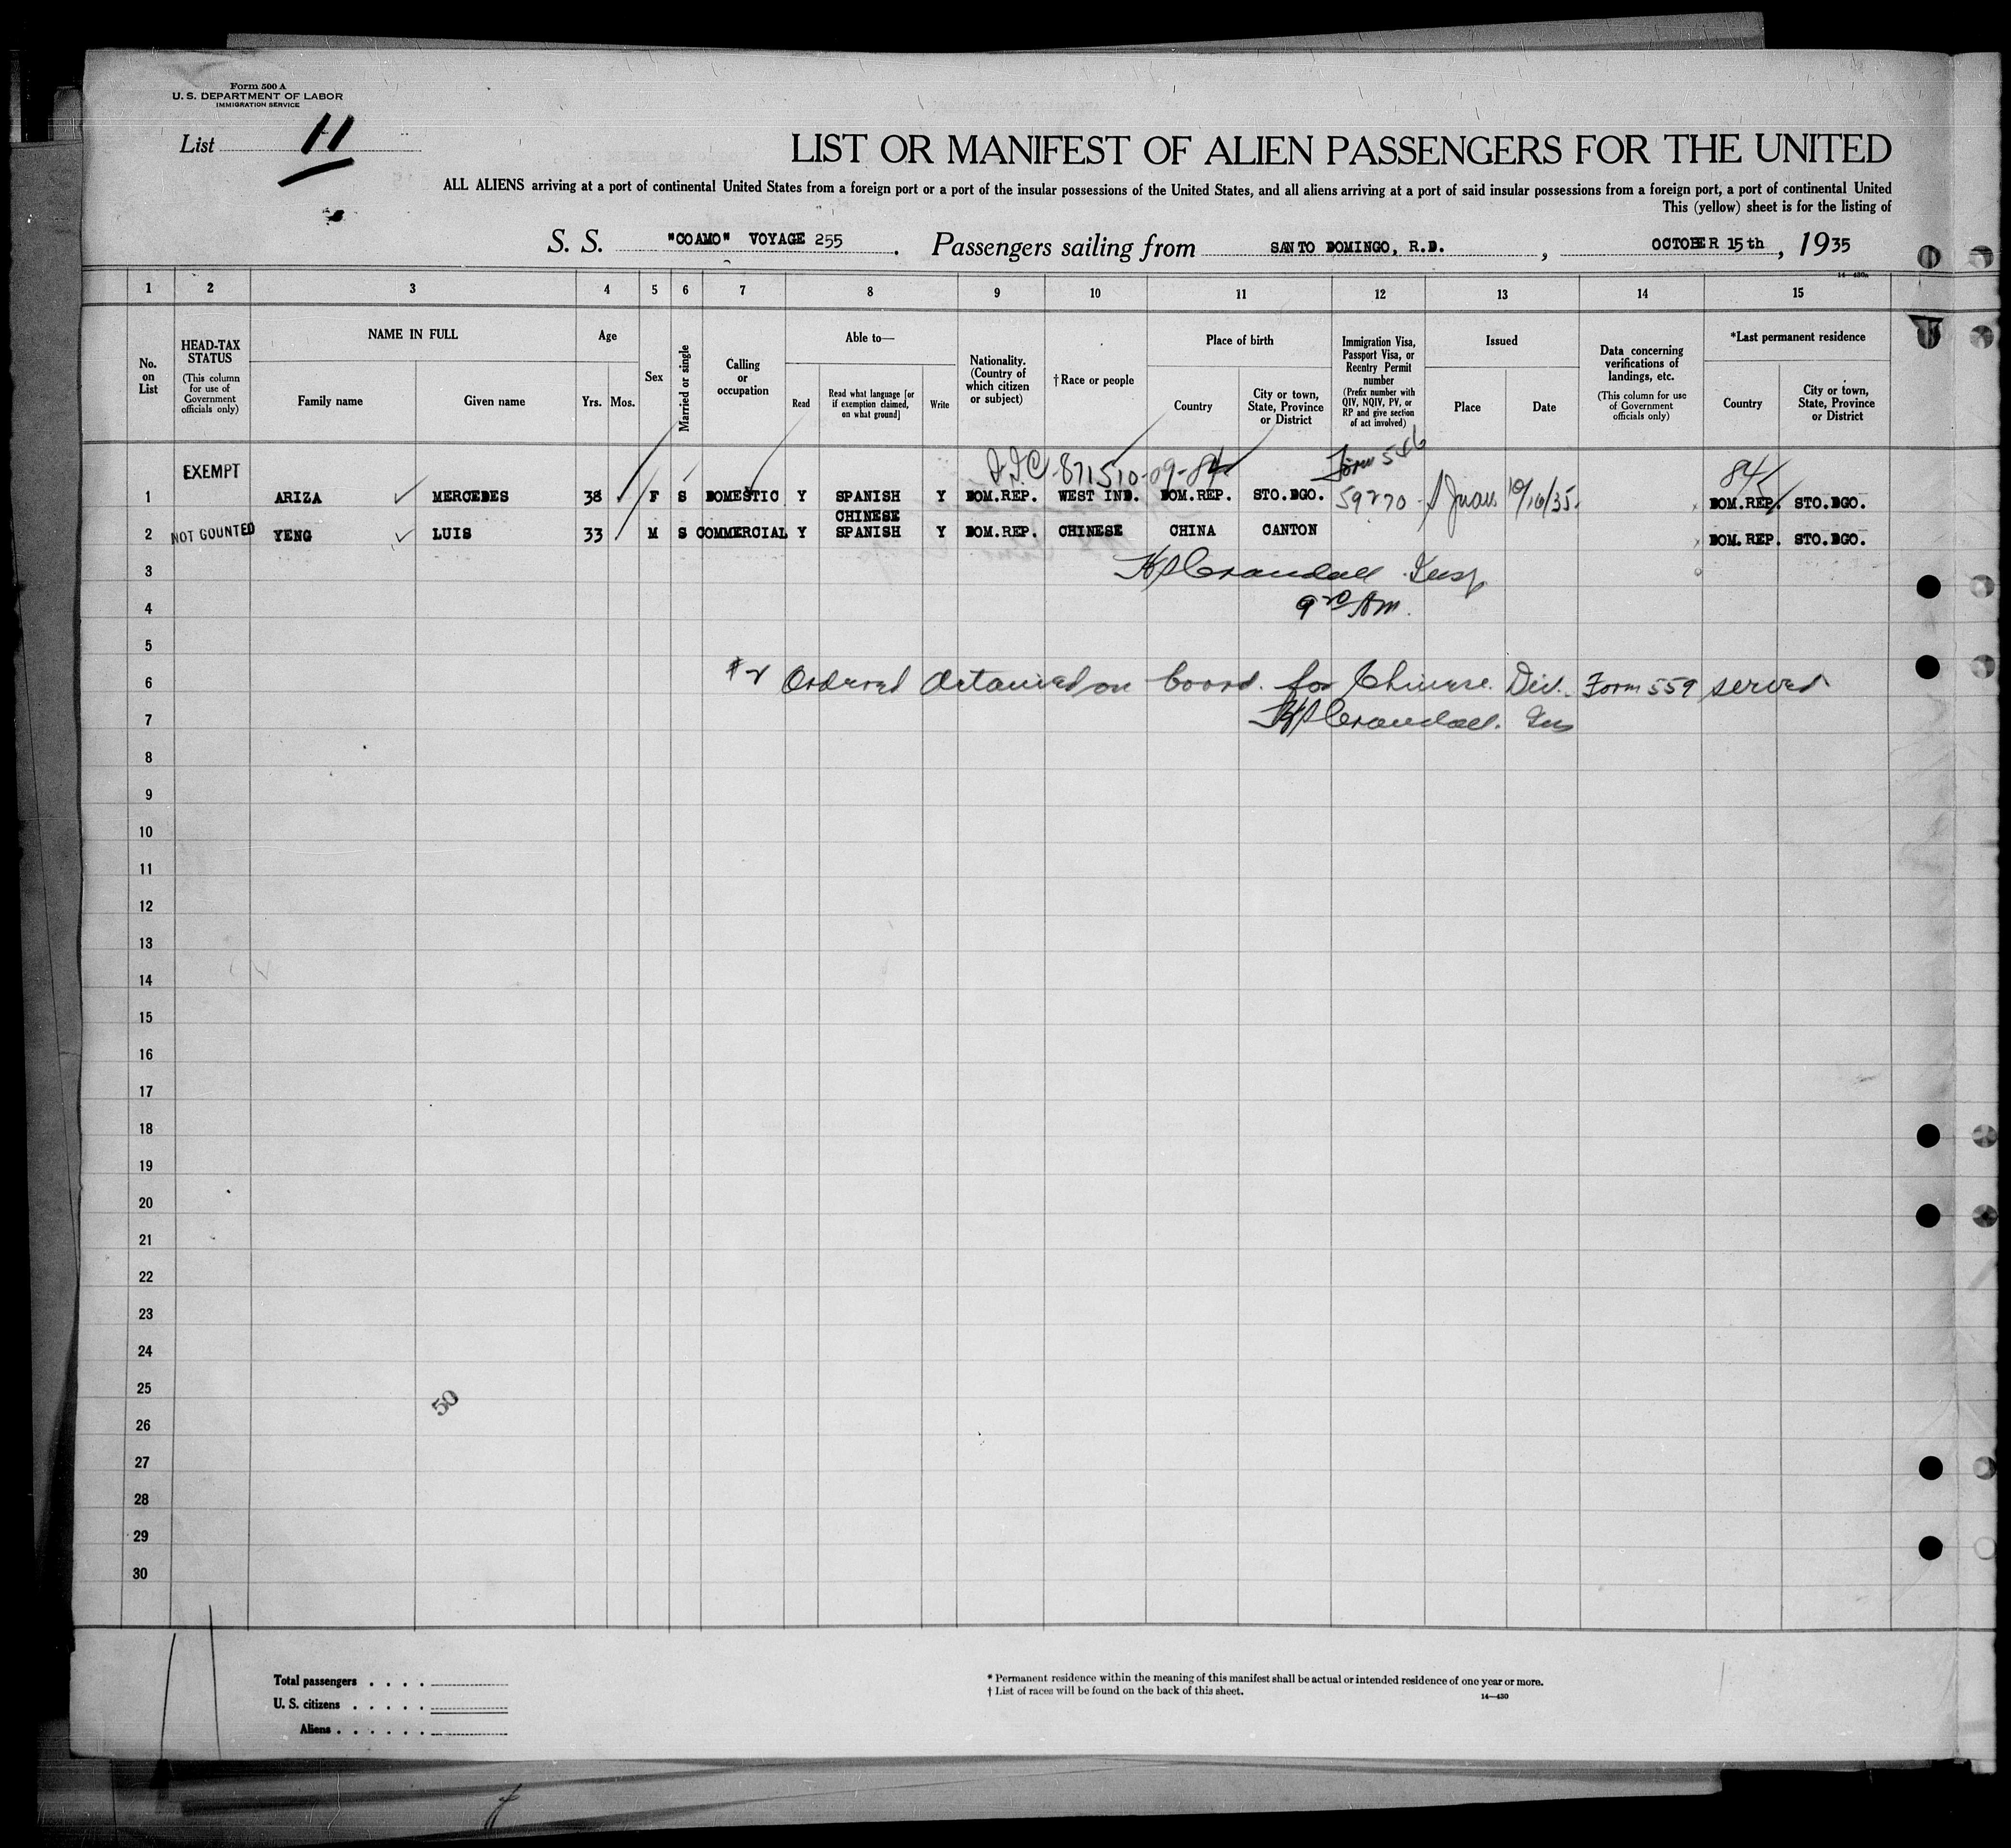 Form 500 A
U. S. DEPARTMENT OF LABOR
IMMIGRATION SERVICE
List 11
LIST OR MANIFEST OF ALIEN PASSENGERS FOR THE UNITED
ALL ALIENS arriving at a port of continental United States from a foreign port or a port of the insular possessions of the United States, and all aliens arriving at a port of said insular possessions from a foreign port, a port of continental United
This (yellow) sheet is for the listing of
S. S. "COAMO" VOYAGE 255. Passengers sailing from SANTO DOMINGO, R.D., OCTOBER 15th, 1935
14-430a
1 2 3 4 5 6 7 8 9 10 11 12 13 14 15
No. on List
HEAD-TAX STATUS (This column for use of Government officials only)
NAME IN FULL
Family name
Given name
Age
Yrs. Mos.
Sex
Married or single
Calling or occupation
Able to—
Read
Read what language [or if exemption claimed, on what ground]
Write
Nationality. (Country of which citizen or subject)
†Race or people
Place of birth
Country
City or town, State, Province or District
Immigration Visa, Passport Visa, or Reentry Permit number (Prefix number with QIV, NQIV, PV, or RP and give section of act involved)
Issued
Place
Date
Data concerning verifications of landings, etc. (This column for use of Government officials only)
*Last permanent residence
Country
City or town, State, Province or District
EXEMPT 871510-09-84 Form 546 84
1 ARIZA MERCEDES 38 F S DOMESTIC Y SPANISH Y DOM.REP. WEST IND. DOM.REP. STO.DGO. 59270 S Juan 10/16/35. DOM.REP. STO.DGO.
CHINESE
2 NOT COUNTED YENG LUIS 33 M S COMMERCIAL Y SPANISH Y DOM.REP. CHINESE CHINA CANTON DOM.REP. STO.DGO.
3 Crandall Insp
4 9 AM.
5
6 #2 Ordered detained on board for Chinese Div. Form 559 served
7 Crandall. Ins
8
9
10
11
12
13
14
15
16
17
18
19
20
21
22
23
24
25
50
26
27
28
29
30
Total passengers . . . .
U. S. citizens . . . . .
Aliens . . . . . .
* Permanent residence within the meaning of this manifest shall be actual or intended residence of one year or more.
† List of races will be found on the back of this sheet.
14-430